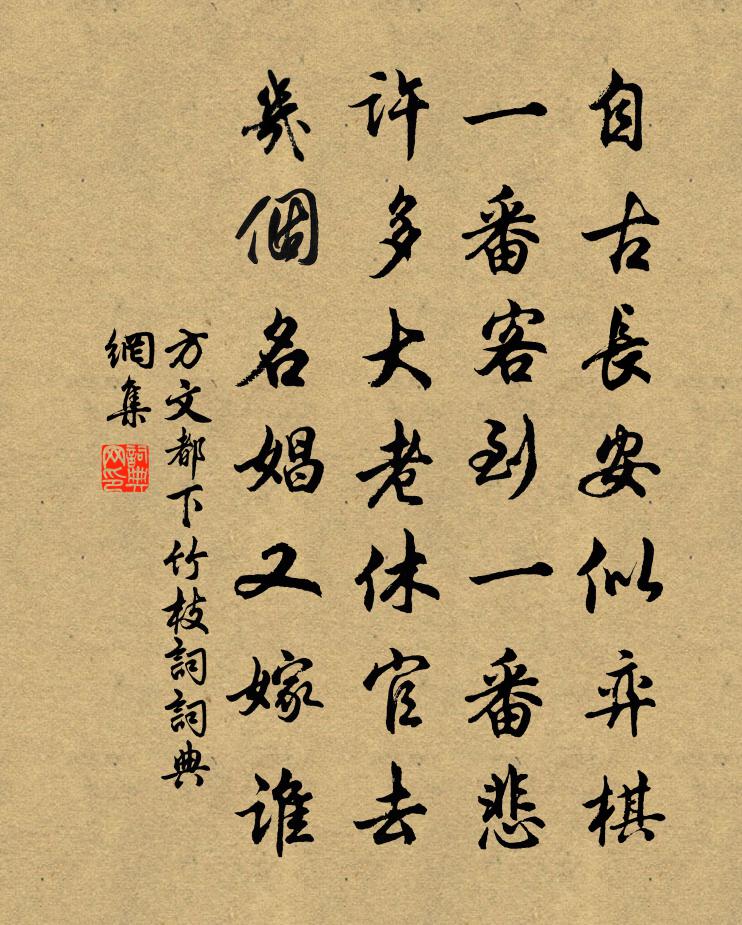 自古長安似弈棋
一番客到一番悲
許多大老休官去
幾個名娼又嫁誰
方文都下竹枝詞詞典
網集
詞典網印